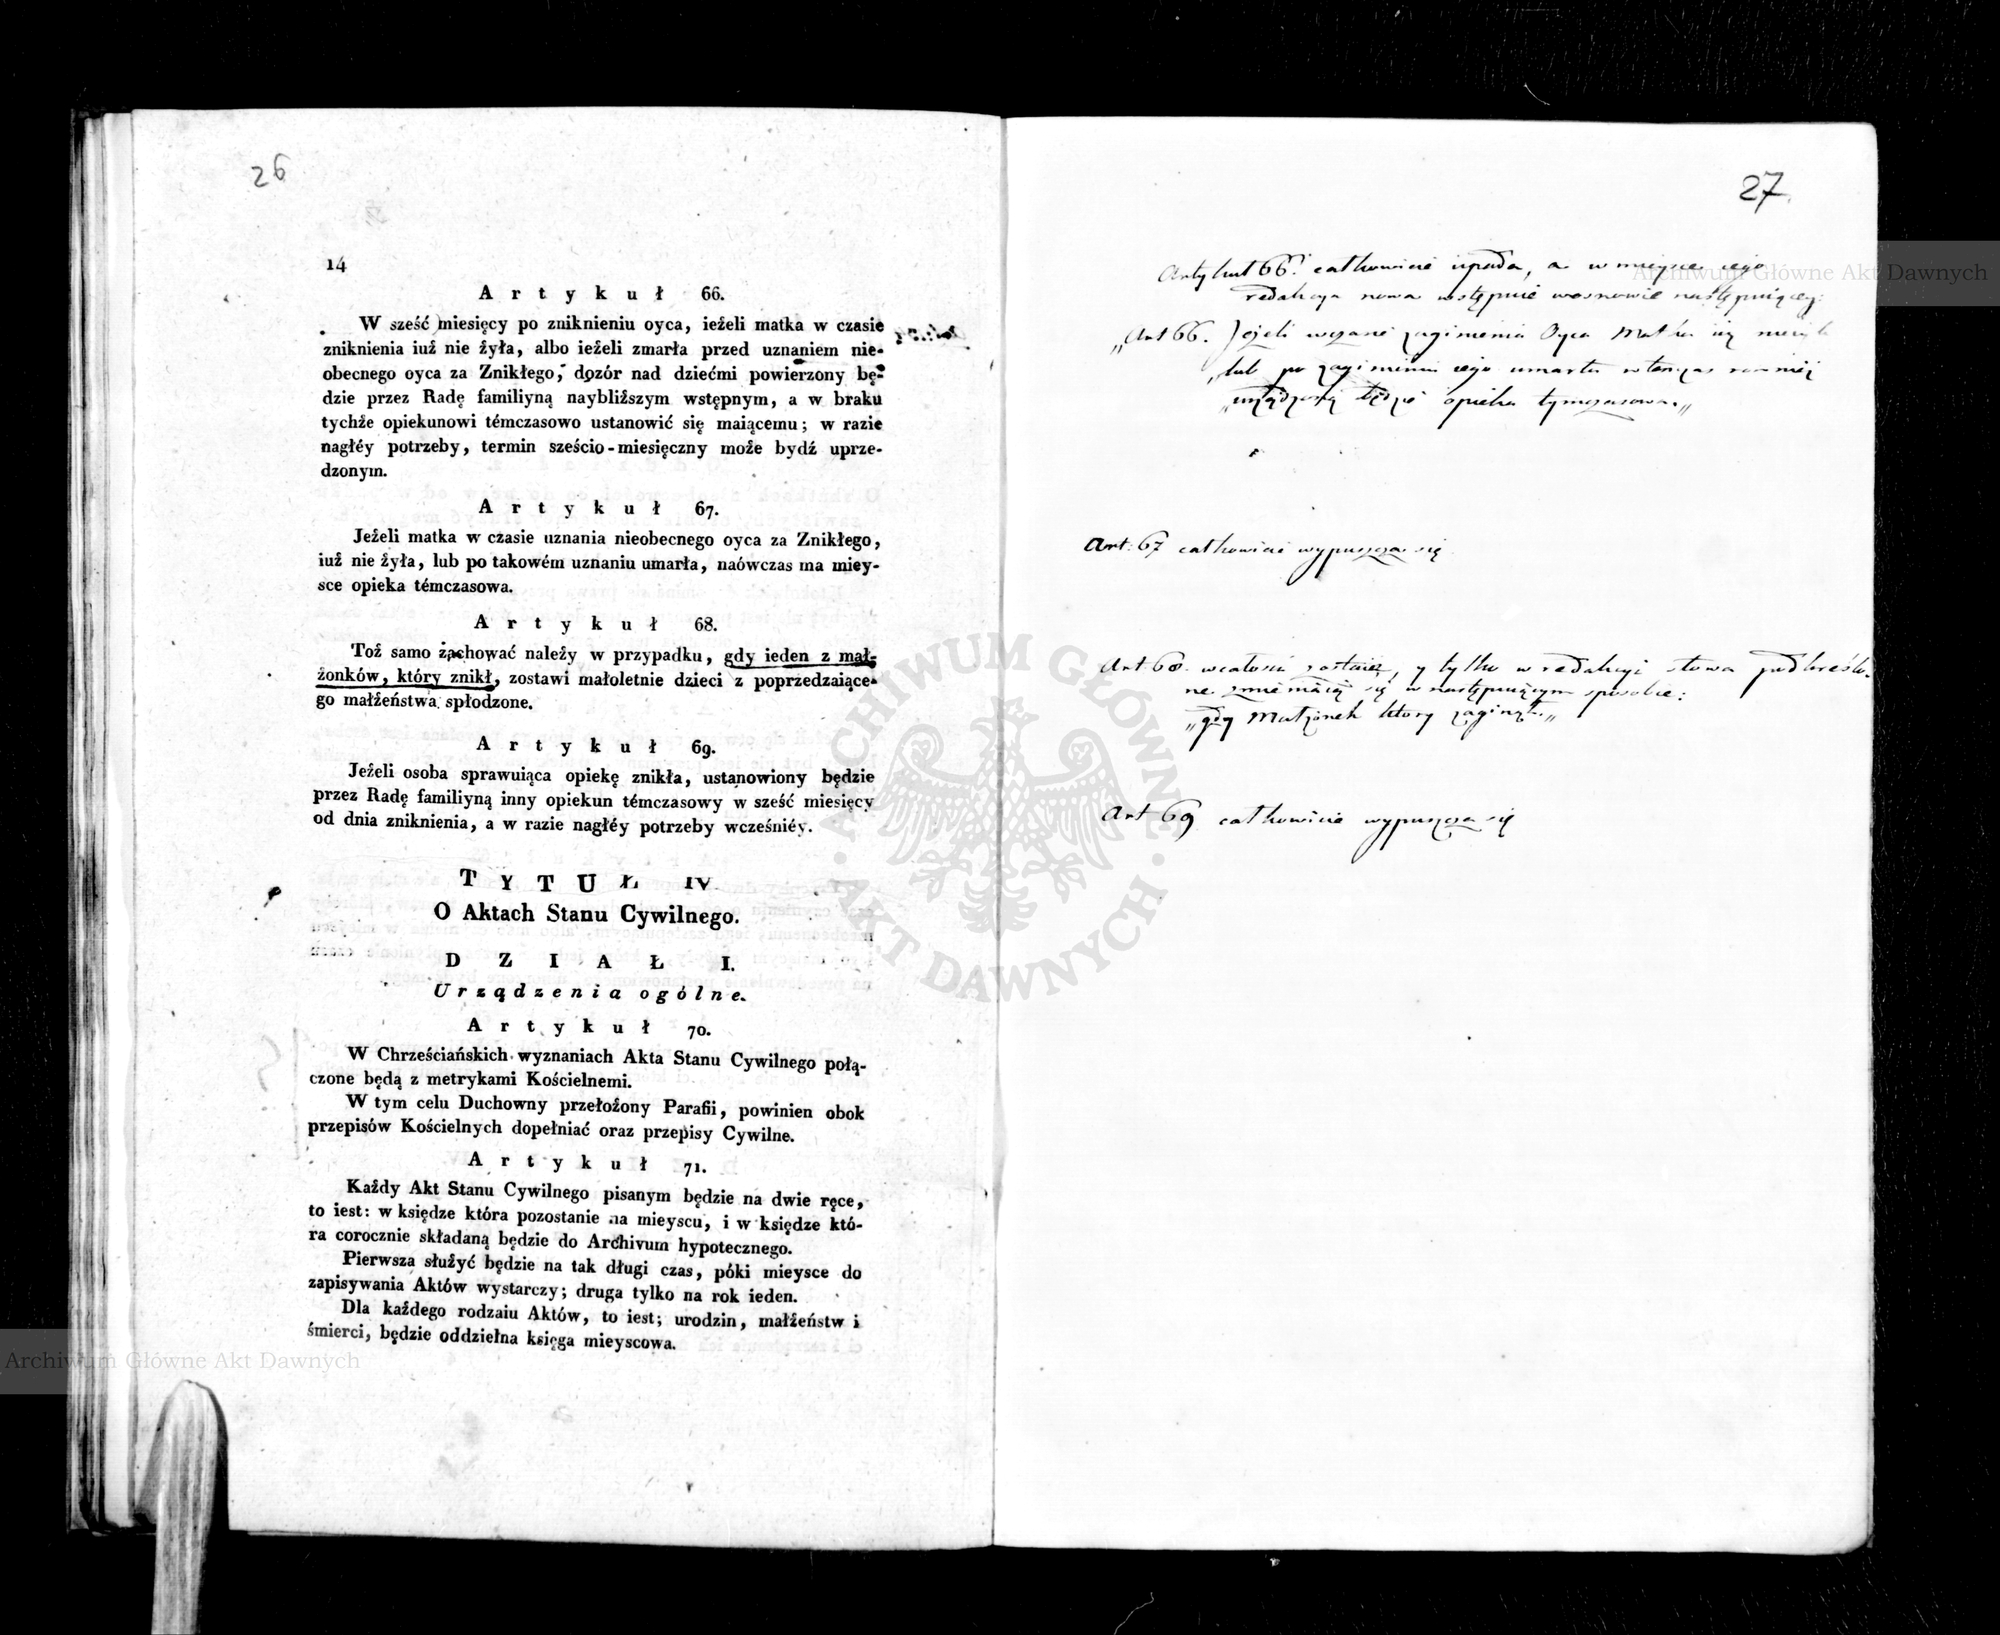 26
14
Artykuł 66.
W sześć miesięcy po zniknieniu oyca, ieżeli matka w czasie
zniknienia iuż nie żyła, albo ieżeli zmarła przed uznaniem nie-
obecnego oyca za Znikłego, dozór nad dziećmi powierzony bę-
dzie przez Radę familiyną naybliższym wstępnym, a w braku
tychże opiekunowi témczasowo ustanowić się maiącemu; w razie
nagłéy potrzeby, termin sześcio-miesięczny może bydź uprze-
dzonym.
Artykuł 67.
Jeżeli matka w czasie uznania nieobecnego oyca za Znikłego,
iuż nie żyła, lub po takowém uznaniu umarła, naówczas ma miey-
sce opieka témczasowa.
Artykuł 68.
Toż samo zachować należy w przypadku, gdy ieden z mał-
żonków, który znikł, zostawi małoletnie dzieci z poprzedzaiące-
go małżeństwa spłodzone.
Artykuł 69.
Jeżeli osoba sprawuiąca opiekę znikła, ustanowiony będzie
przez Radę familiyną inny opiekun témczasowy w sześć miesięcy
od dnia zniknienia, a w razie nagłéy potrzeby wcześniéy.
TYTUŁ IV.
O Aktach Stanu Cywilnego.
DZIAŁ I.
Urządzenia ogólne.
Artykuł 70.
W Chrześciańskich wyznaniach Akta Stanu Cywilnego połą-
czone będą z metrykami Kościelnemi.
W tym celu Duchowny przełożony Parafii, powinien obok
przepisów Kościelnych dopełniać oraz przepisy Cywilne.
Artykuł 71.
Każdy Akt Stanu Cywilnego pisanym będzie na dwie ręce,
to iest: w księdze która pozostanie na mieyscu, i w księdze któ-
ra corocznie składaną będzie do Archivum hypotecznego.
Pierwsza służyć będzie na tak długi czas, póki mieysce do
zapisywania Aktów wystarczy; druga tylko na rok ieden.
Dla każdego rodzaiu Aktów, to iest; urodzin, małżeństw i
śmierci, będzie oddzielna księga mieyscowa.
27
Artykuł 66. całkowicie upada, a w mieysce iego
redakcya nowa wstępuie w osnowie następuiącey:
„Art 66. Jeżeli w czasie zaginienia Oyca Matka iuż nie żyła
„lub po zaginieniu iego umarła wtenczas również
„urządzoną będzie opieka tymczasowa.„
Art: 67 całkowicie wypuszcza się
Art: 68. w całości zostaie, y tylko w redakcyi słowa podkreślo-
ne zmieniaią się w następuiącym sposobie:
„gdy Małżonek który zaginął.„
Art 69 całkowicie wypuszcza się
Archiwum Główne Akt Dawnych
ARCHIWUM GŁÓWNE · AKT DAWNYCH ·
Archiwum Główne Akt Dawnych